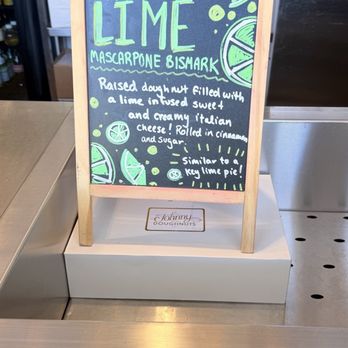 LIME
MASCARPONE BISMARK
Raised doughnut filled with
a lime infused sweet
and creamy italian
cheese! Rolled in cinnamon
and sugar.
Similar to a
key lime pie!
Johnny
DOUGHNUTS